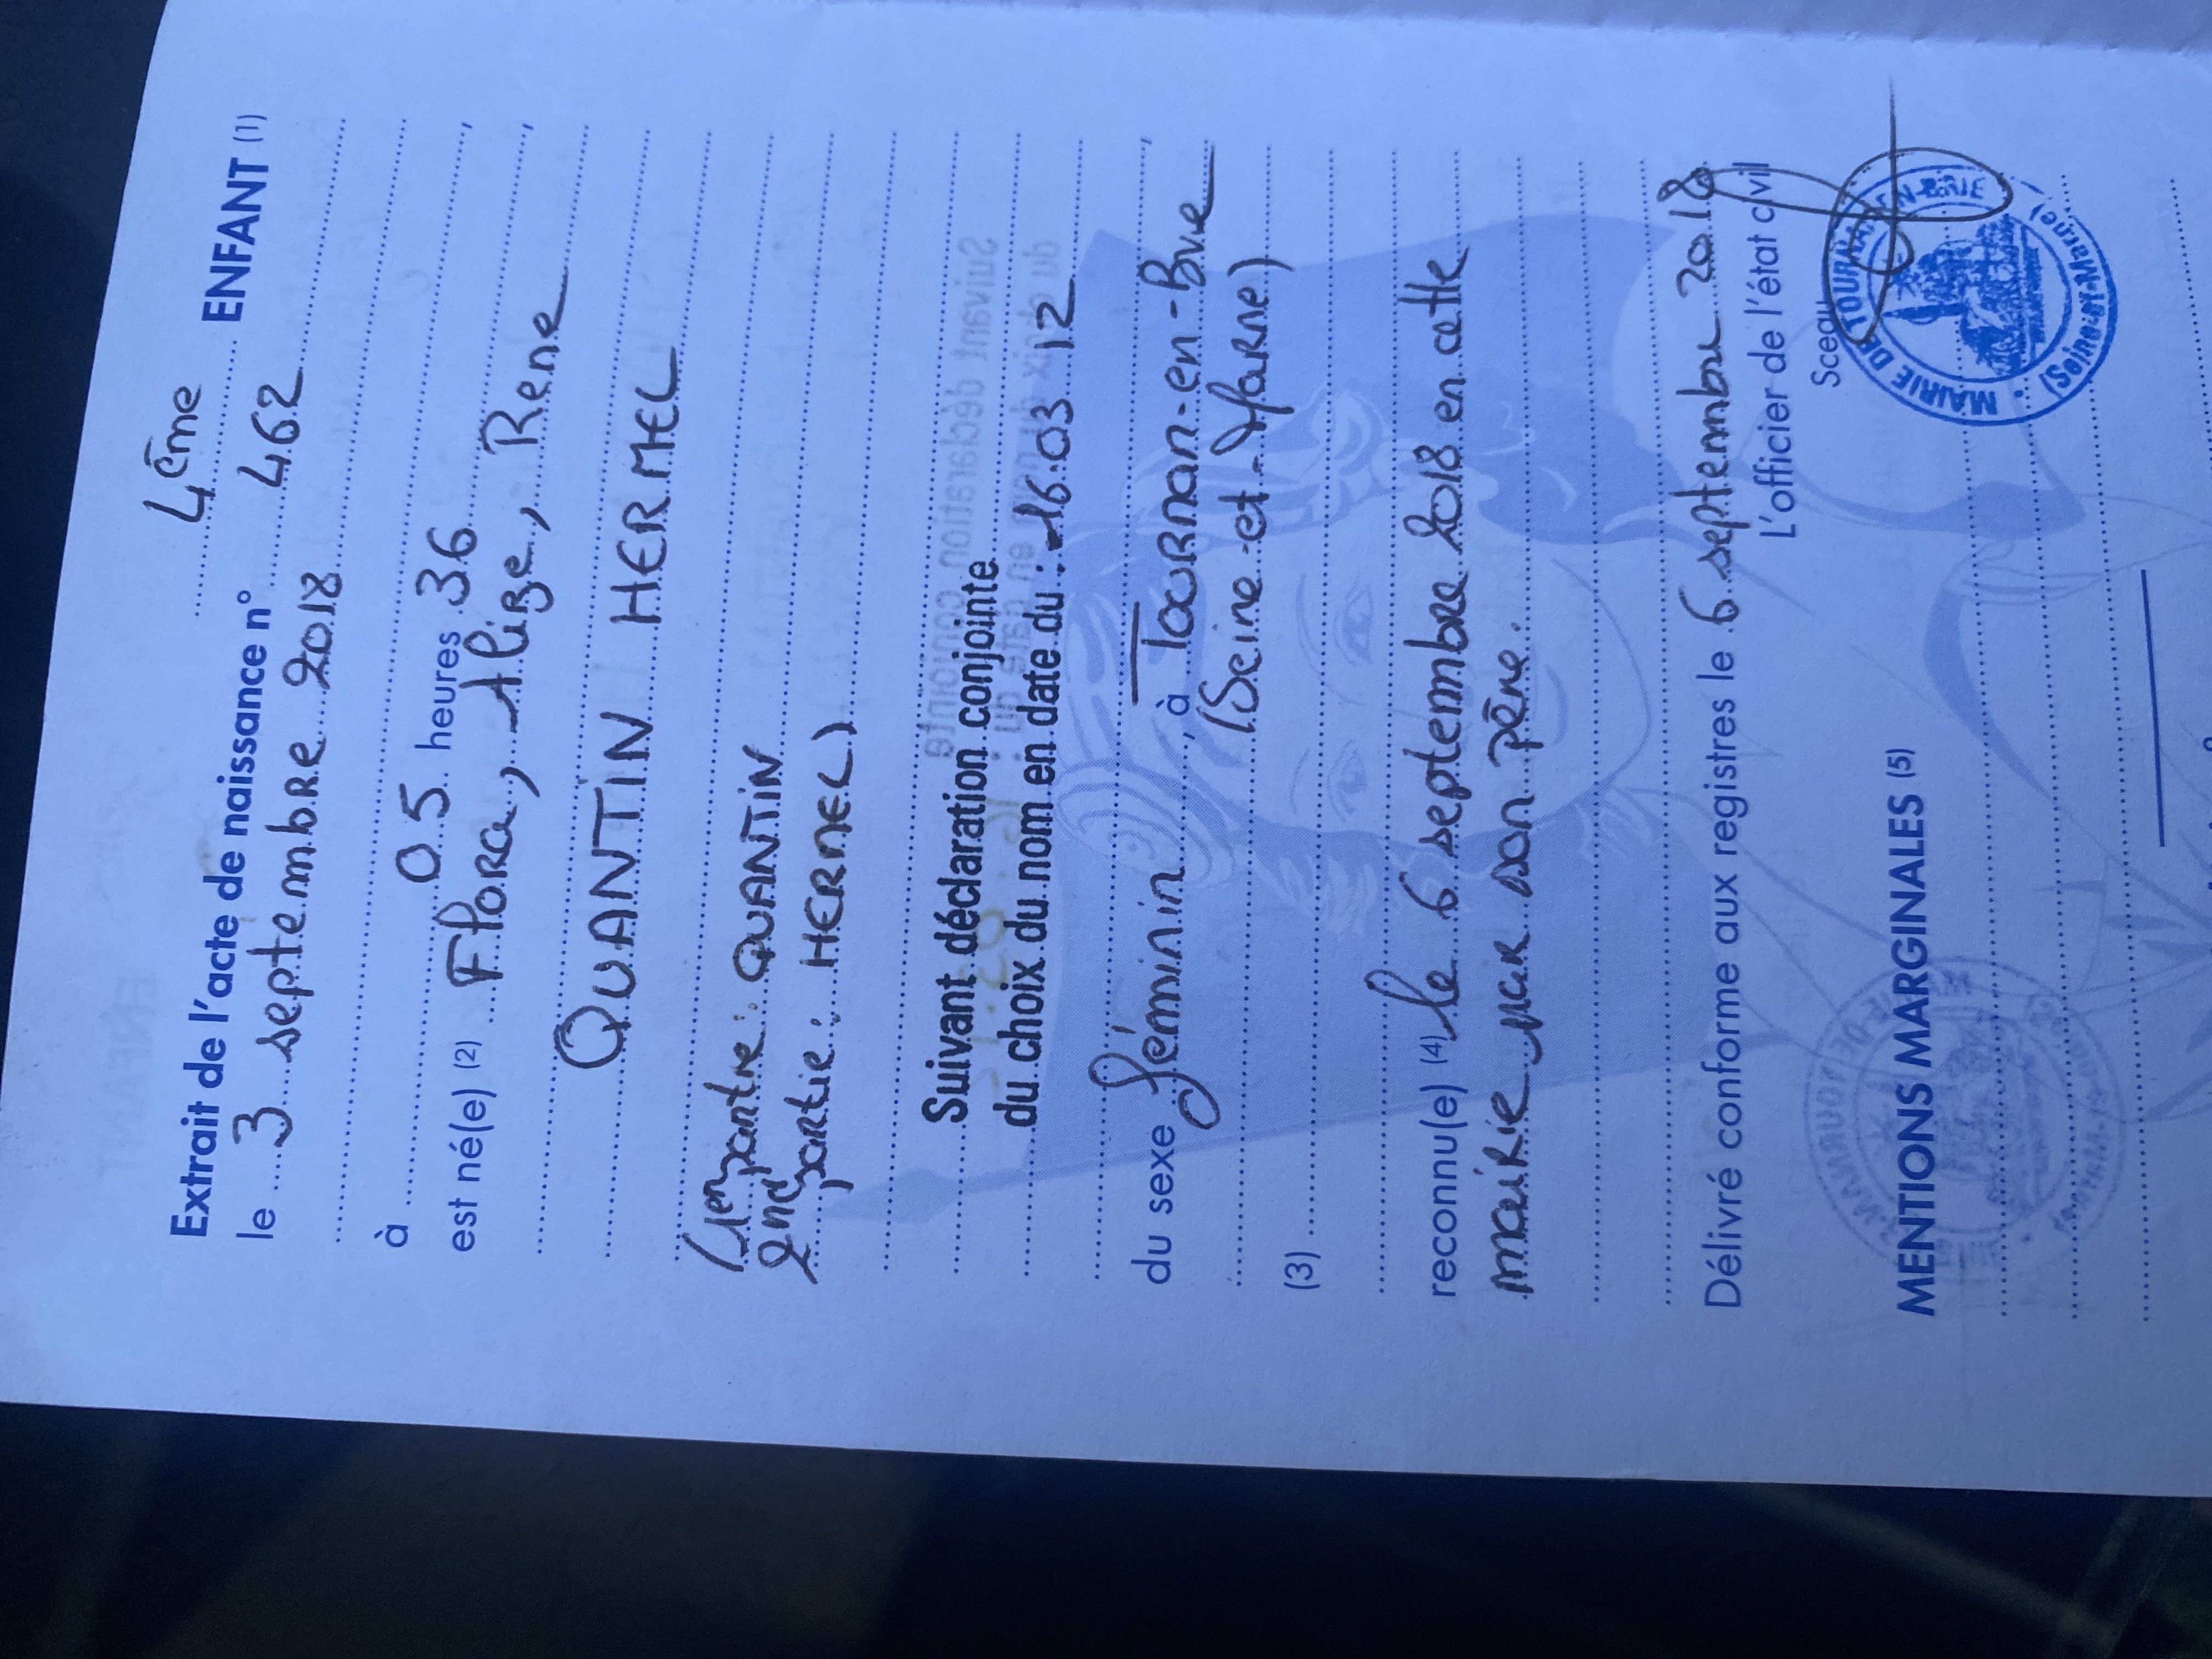 4ème
Extrait de l'acte de naissance n° 462 ENFANT (1)
le 3 septembre 2018
à 05 heures 36
est né(e) (2) Flora, Alize, Rene
QUANTIN HERMEL
(1er partie : QUANTIN
2nd partie : HERMEL)
Suivant déclaration conjointe
du choix du nom en date du : 16.03 12
du sexe féminin, à Tournan-en-Brie
(Seine-et-Marne)
(3)
reconnu(e) (4) le 6 septembre 2018 en cette
mairie par son père.
Délivré conforme aux registres le 6 septembre 2018
L'officier de l'état civil
Sceau
MAIRIE DE TOURNAN-EN-BRIE
(Seine-et-Marne)
MENTIONS MARGINALES (5)